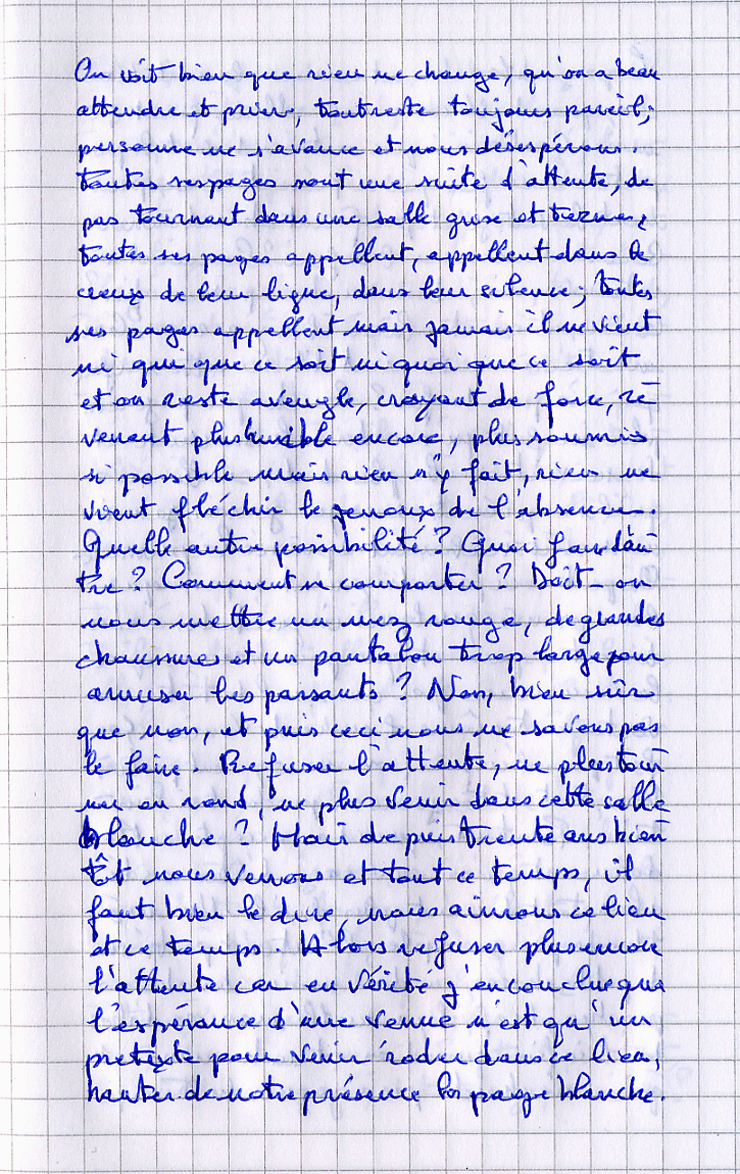 On voit bien que rien ne change, qu'on a beau
attendre et prier, tout reste toujours pareil;
personne ne s'avance et nous désespérons.
Toutes ses pages sont une suite d'attente, de
pas tournant dans une salle grise et terne,
toutes ses pages appellent, appellent dans le
creux de leur ligne, dans leur silence; toutes
ses pages appellent mais jamais il ne vient
ni qui que ce soit ni quoi que ce soit
et on reste aveugle, croyant de force, re
venant plus humble encore, plus soumis
si possible mais rien n'y fait, rien ne
vient fléchir le genoux de l'absence.
Quelle autre possibilité? Quoi faudait
tre? Comment se comporter? Doit-on
nous mettre un nez rouge, de grandes
chaussures et un pantalon trop large pour
amuser les passants? Non, bien sûr
que non, et puis ceci nous ne savons pas
le faire. Refuser l'attente, ne plus tour
ner en rond, ne plus venir dans cette salle
blanche? Mais depuis trente ans bien
tôt nous venons et tout ce temps, il
faut bien le dire, nous aimons ce lieu
et ce temps. Alors refuser plus encore
l'attente car en vérité j'en conclue que
l'espérance d'une venue n'est qu'un
pretexte pour venir rôder dans ce lieu,
hanter de notre présence la page blanche.